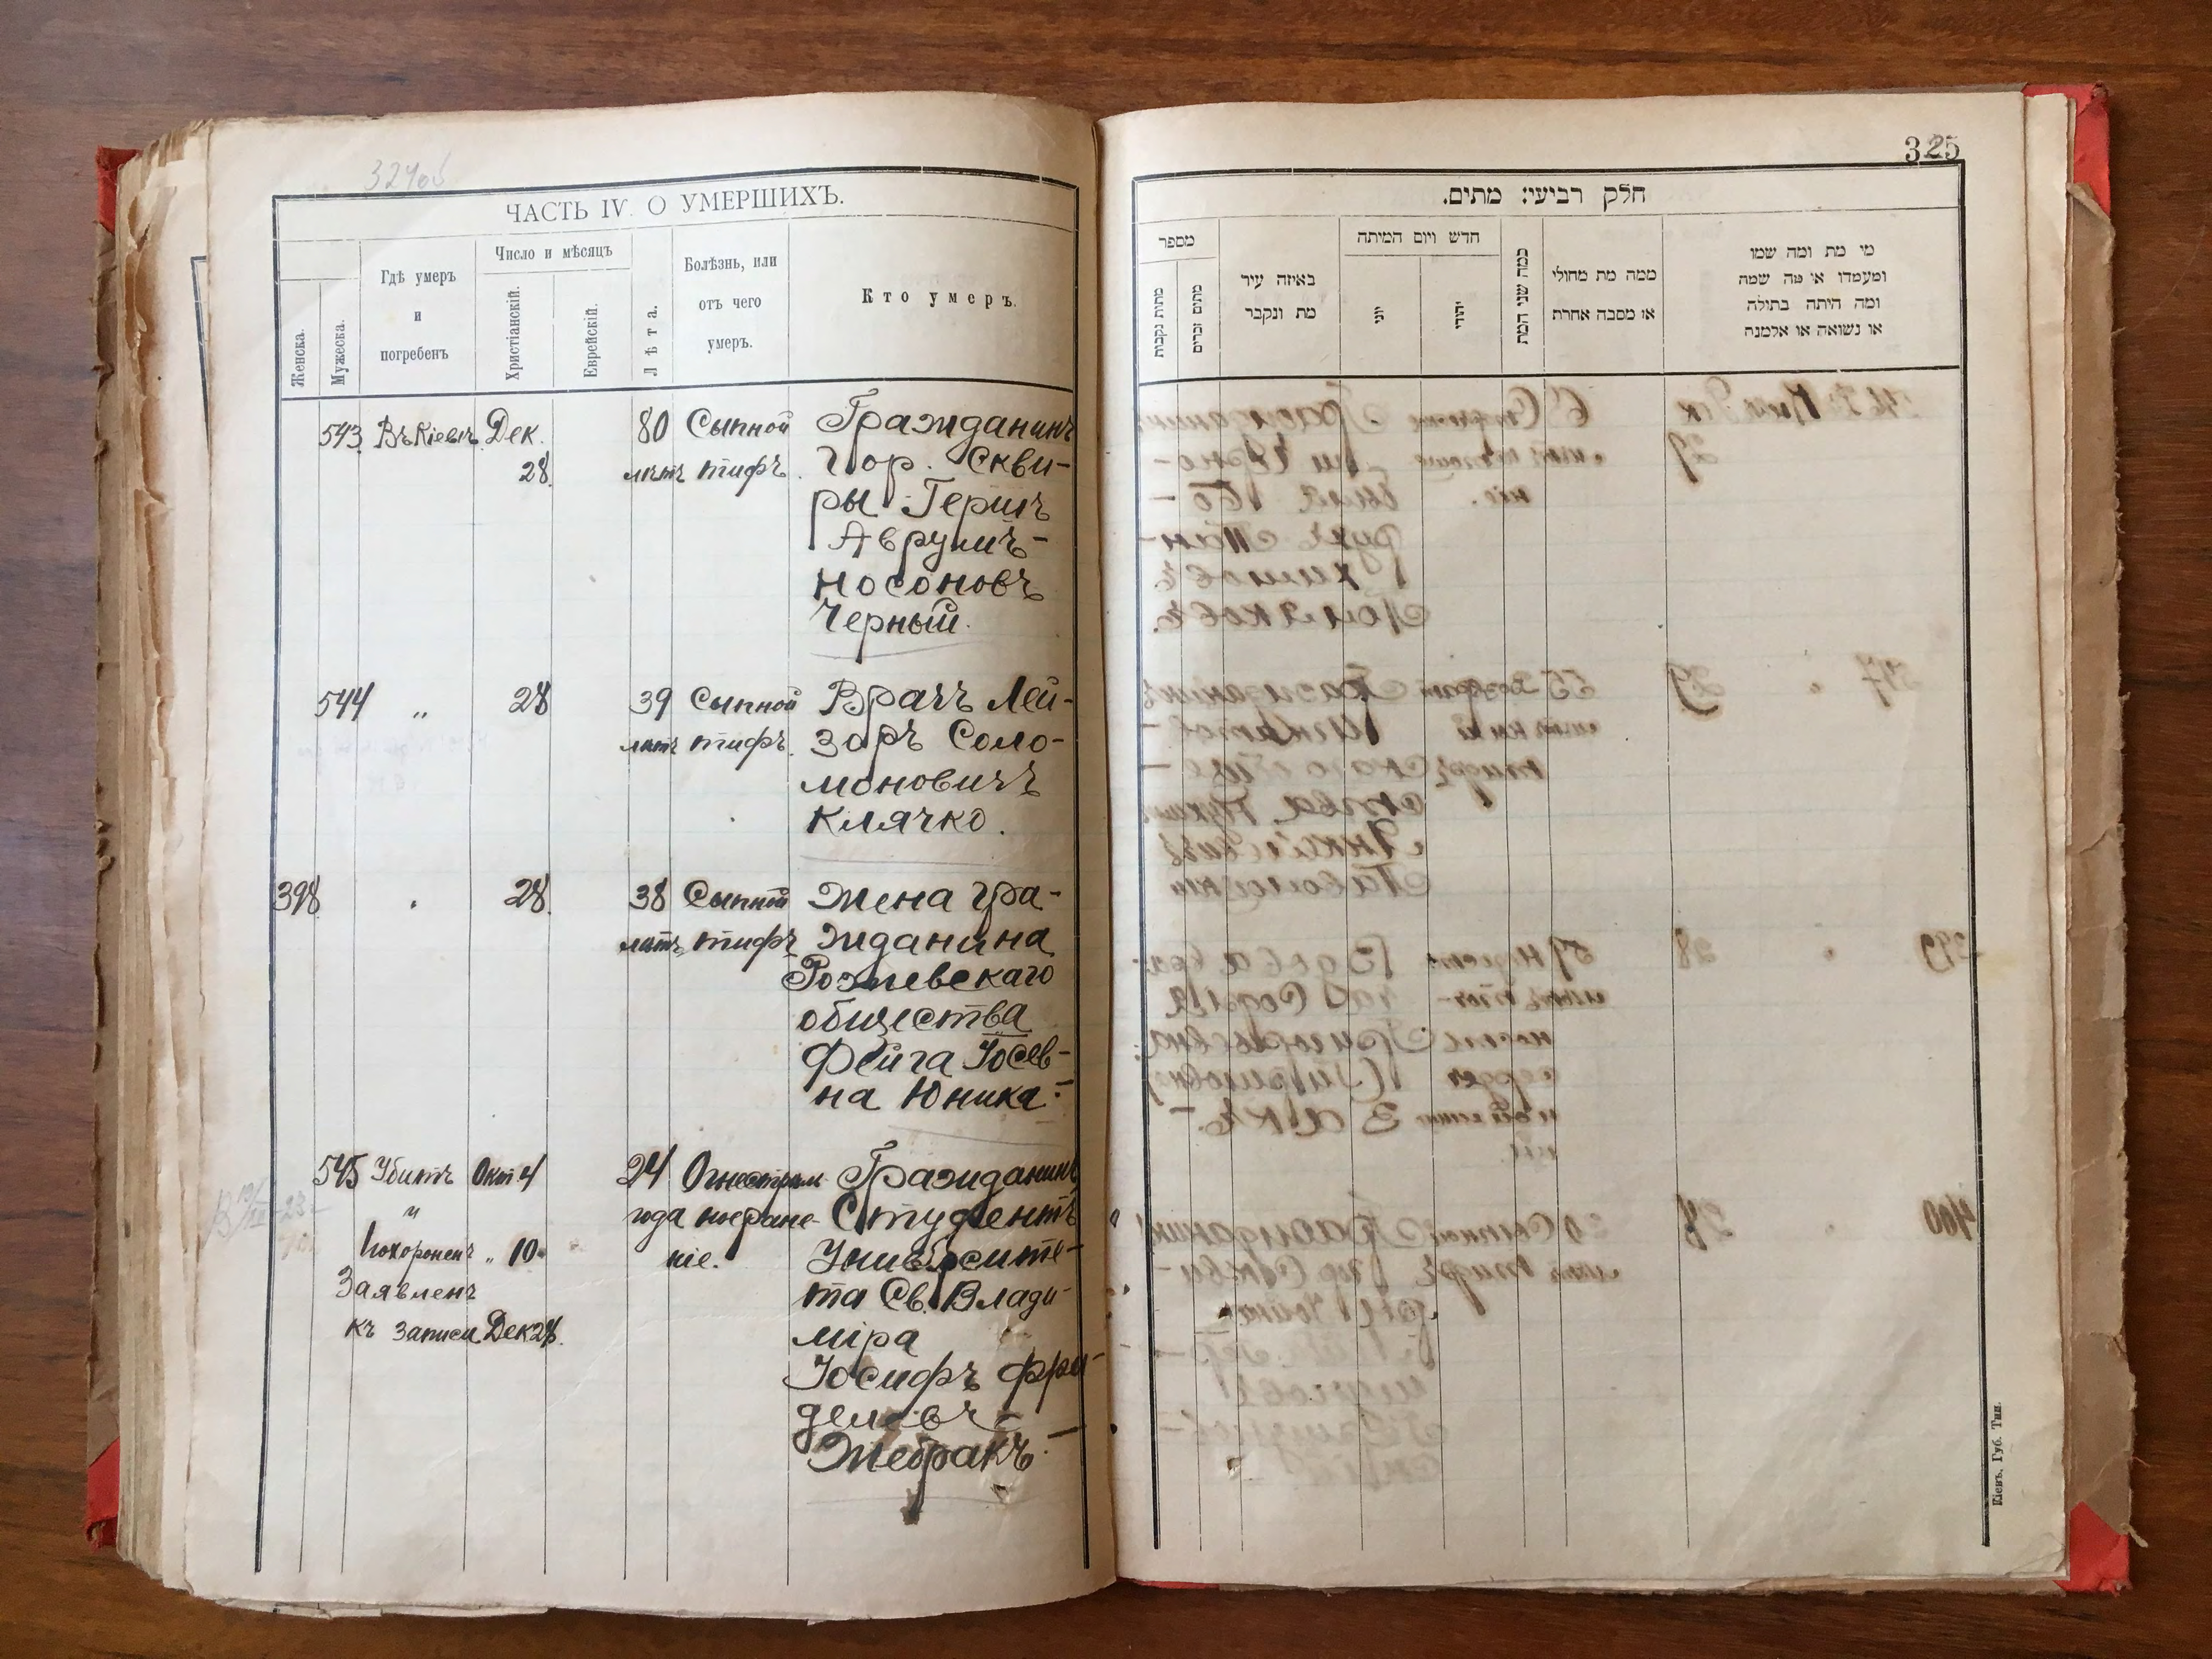 324об
ЧАСТЬ IV. О УМЕРШИХЪ.
Женска.
Мужеска.
Гдѣ умеръ
и
погребенъ
Число и мѣсяцъ
Христіанскій.
Еврейскій.
Лѣта.
Болѣзнь, или
отъ чего
умеръ.
Кто умеръ.
543 Въ Кіевѣ Дек. 80 Сыпной Гражданинъ
28. лѣтъ тифъ. гор. Скви-
ры Гершъ
Аврумъ-
Носоновъ
Черный.
544 „ 28 39 Сыпной Врачъ Лей-
лѣтъ тифъ. заръ Соло-
моновичъ
Клячко.
398 „ 28. 38 Сыпной Жена гра-
лѣтъ тифъ жданина
Рожевскаго
общества
Фейга Іосев-
на Юника.-
545 Убитъ Окт 4 24 Огнестрѣль- Гражданинъ
и года ное ране- Студентъ
Похороненъ „ 10 ніе. Университе-
Заявленъ та Св. Влади-
къ записи Дек 28. міра
Іосифъ Фри-
делевъ-
Жебракъ.-
325
חלק רביעי: מתים.
מספר
מתות נקבות
מתים זכרים
באיזה עיר
מת ונקבר
חדש ויום המיתה
יוני
יהודי
כמה שני המת
ממה מת מחולי
או מסבה אחרת
מי מת ומה שמו
ומעמדו או מה שמה
ומה היתה בתולה
או נשואה או אלמנה
Кіевъ. Губ. Тип.